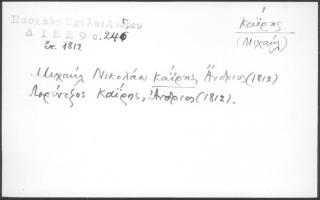 Πασχαλη Σχολαι Άνδρου
Δ Ι Ε Ε 9 σ. 245
Ἐτ. 1812
Καΐρης
(Μιχαήλ)
Μιχαήλ Νικολάου Καΐρης Ἄνδριος (1812)
Λορέντζος Καΐρης, Ἄνδριος (1812).